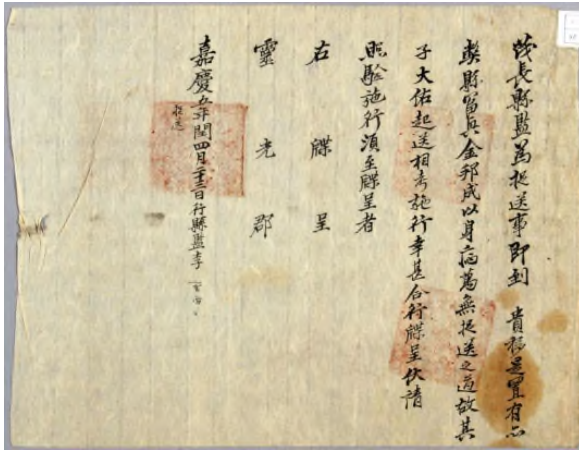 茂長縣監爲捉送事即到 貴移是置有亦
弊縣留與金邦成以身病萬無捉送之道故其
子大佑起送相考施行幸甚合行牒呈伏請
照驗施行須至牒呈者
右牒呈
靈光郡
嘉慶五年閏四月二十三日行縣監李
捉送